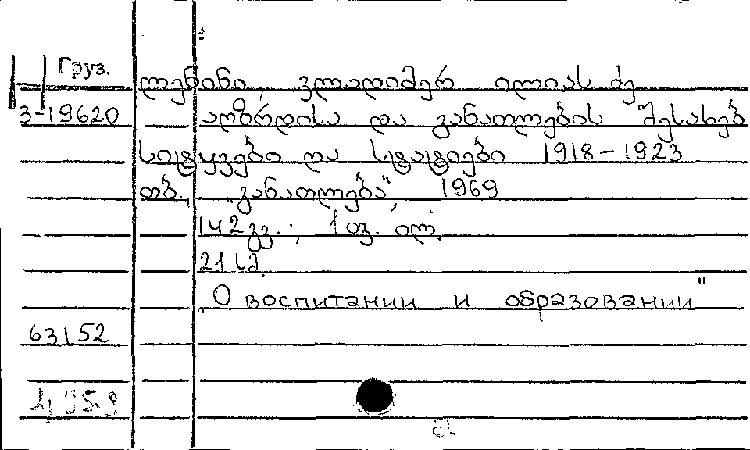 Груз.
ლენინი, ვლადიმერ ილიას ძე
3-19620 აღზრდისა და განათლების შესახებ
სიტყვები და სტატიები 1918-1923
თბ., "განათლება", 1969
142 გვ.; 1 ფ. ილ.
21 სმ.
"О воспитании и образовании"
63152